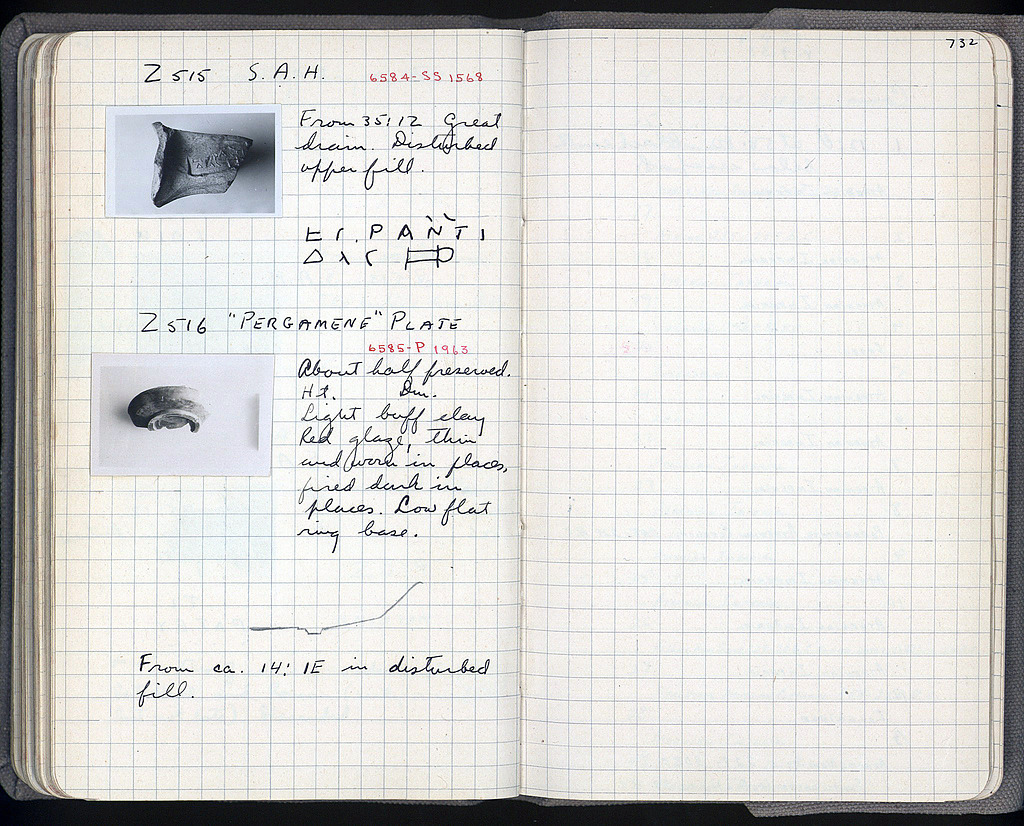 732
Z 515 S. A. H. 6584-SS 1568
From 35/12 Great
drain. Disturbed
upper fill.
Ε Γ. Ρ Α Ν Τ Ι
Z 516 "PERGAMENE" PLATE
6585-P 1963
About half preserved.
Ht. Dm.
Light buff clay
Red glaze, thin
and worn in places,
fired dark in
places. Low flat
ring base.
From ca. 14: IE in disturbed
fill.